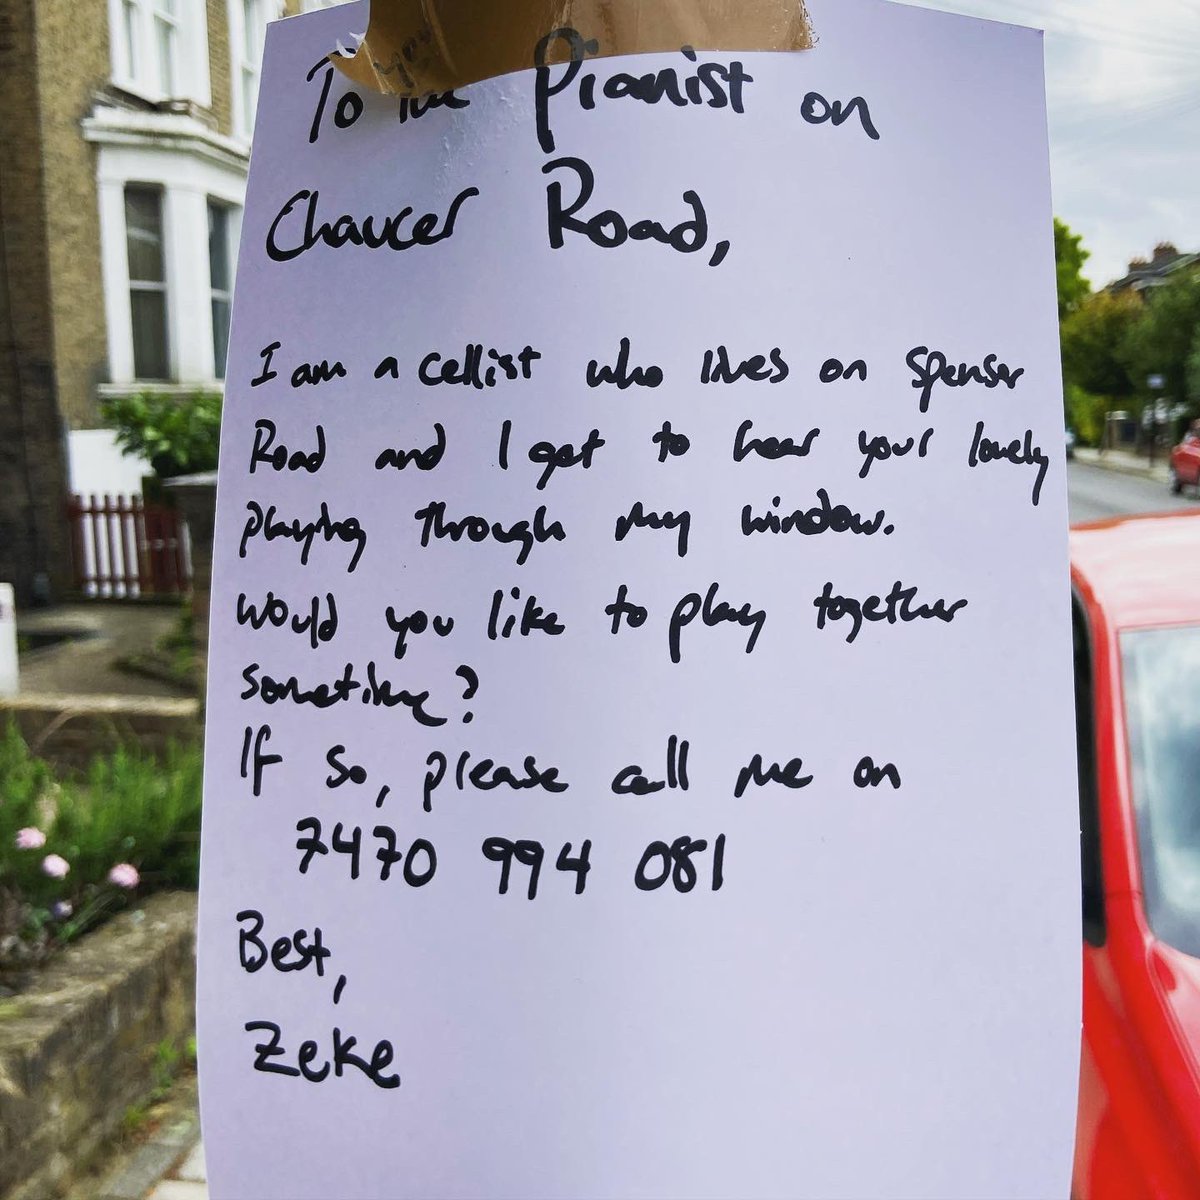 To the Pianist on
Chaucer Road,
I am a cellist who lives on Spenser
Road and I get to hear your lovely
playing through my window.
Would you like to play together
sometime?
If so, please call me on
7470 994 081
Best,
Zeke